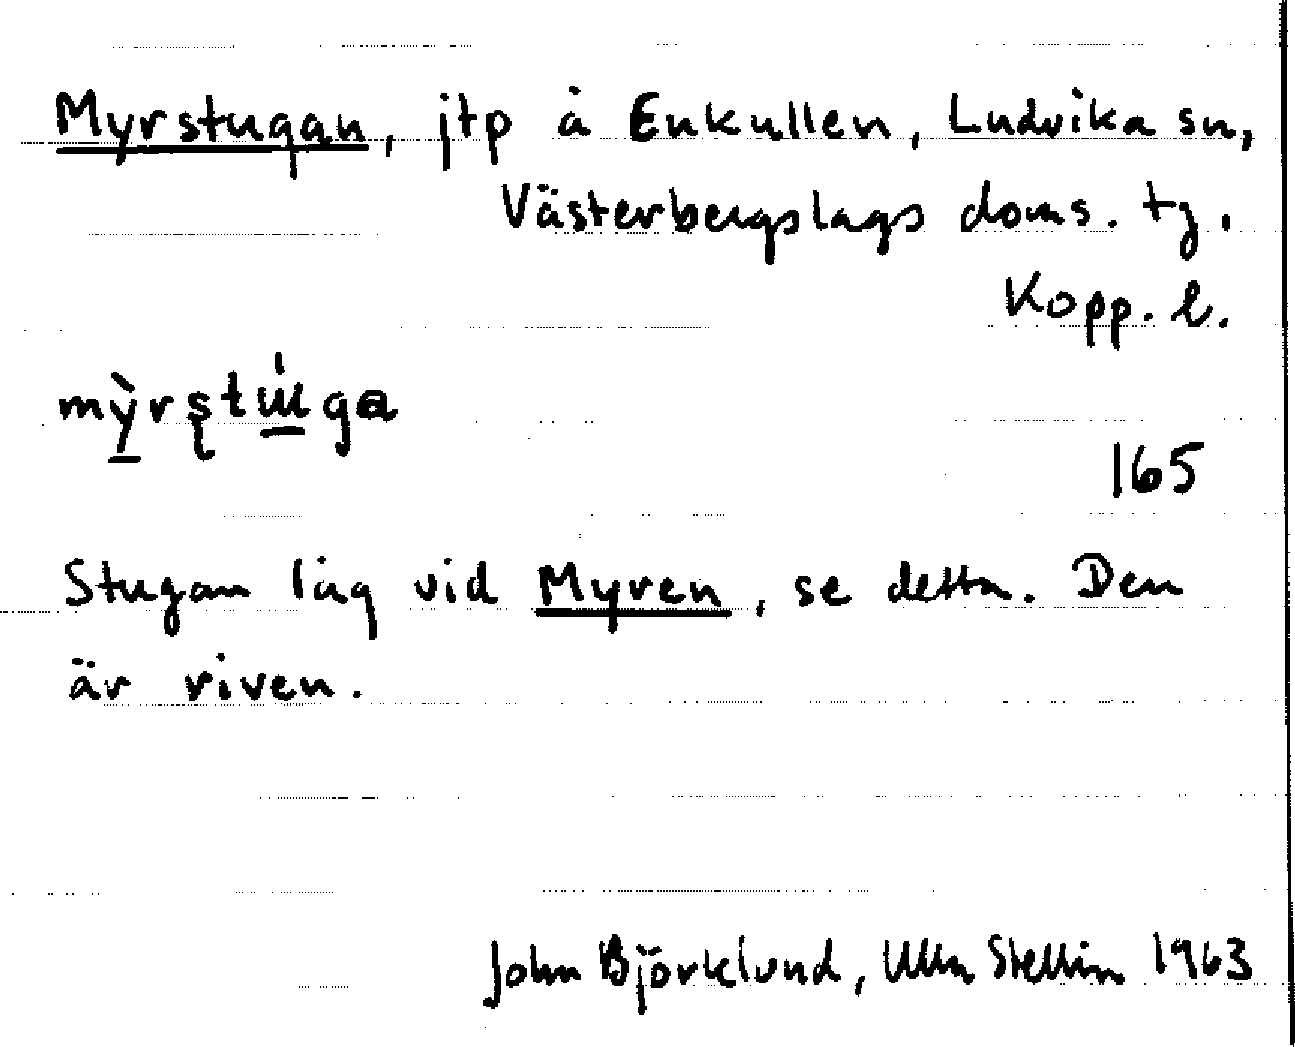 Myrstugan, jtp å Enkullen, Ludvika sn,
Västerbergslags doms. tg.
Kopp. l.
mỳrştɯ́ga
165
Stugan låg vid Myren, se detta. Den
är riven.
John Björklund, Ulla Stellin 1963